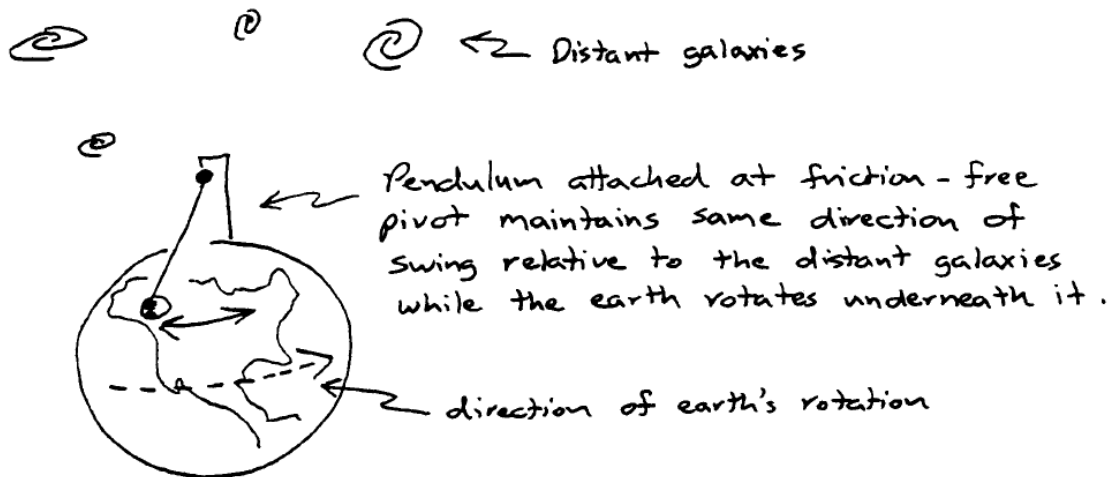 Distant galaxies
Pendulum attached at friction-free
pivot maintains same direction of
swing relative to the distant galaxies
while the earth rotates underneath it.
direction of earth's rotation